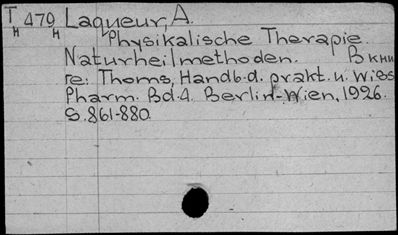 T 479 Laqueur, A.
H H Physikalische Therapie.
Naturheilmethoden. В кни
ге: Thoms, Handb. d. prakt. u. Wiss
Pharm. Bd. 4. Berlin-Wien, 1926.
S. 861-880.